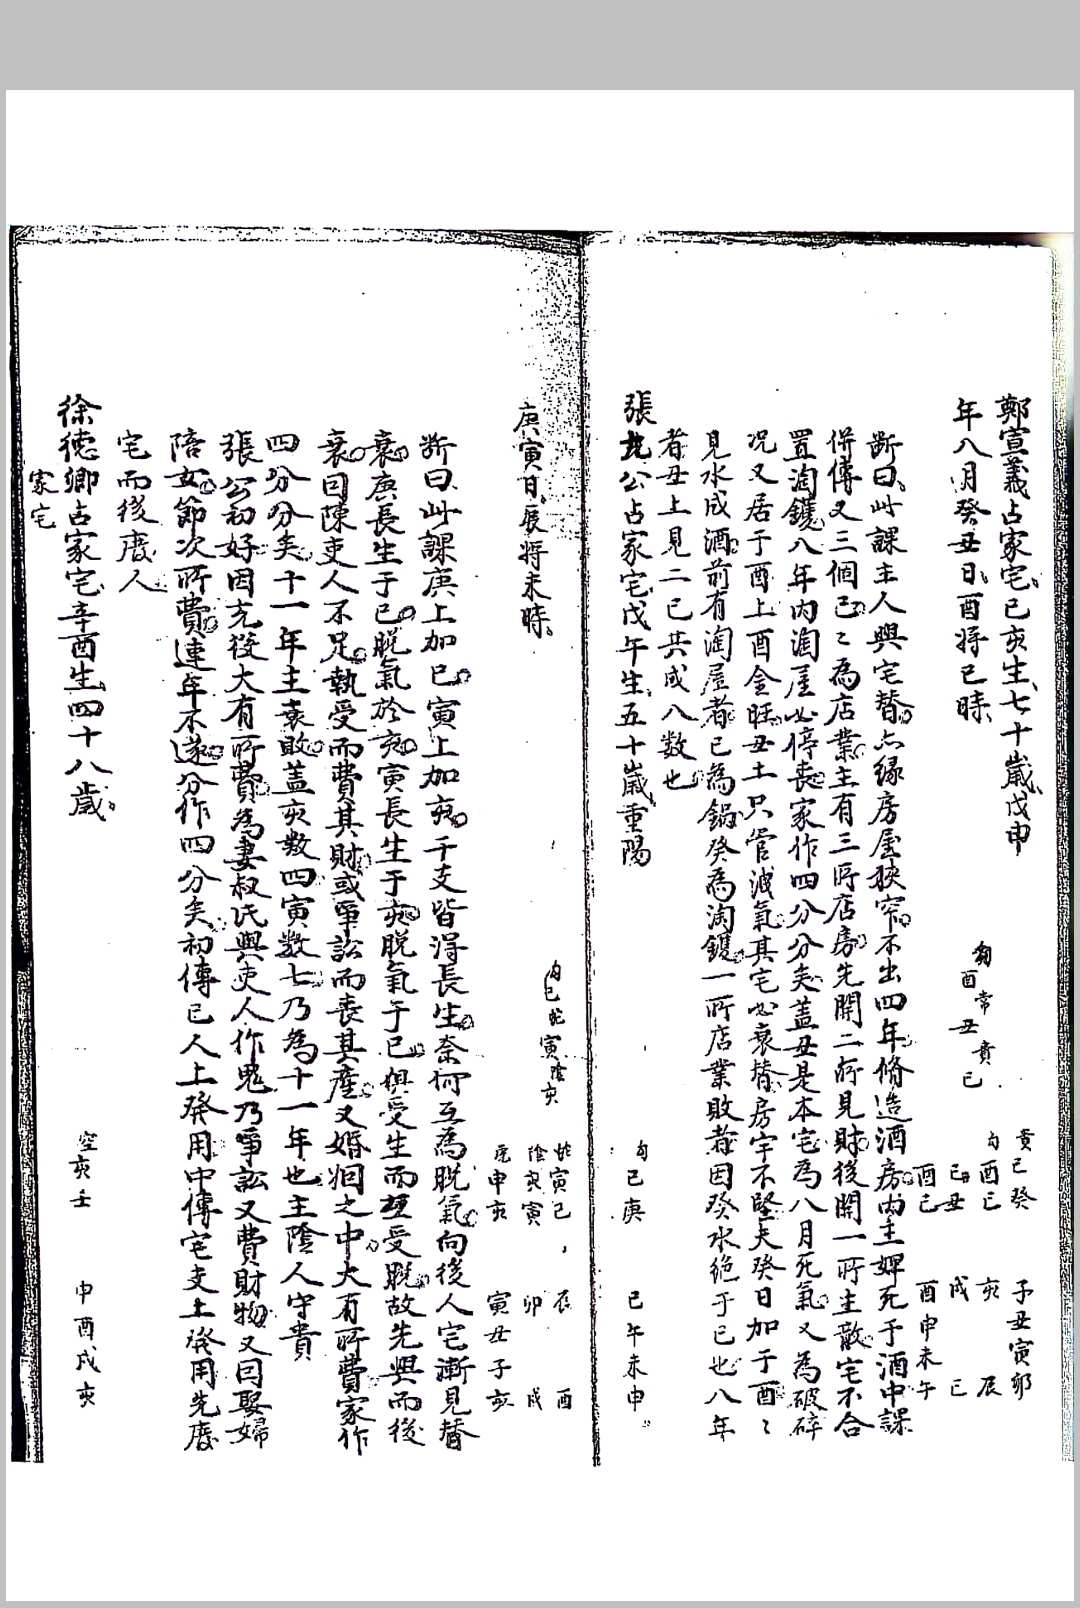 鄭宣義占家宅己亥生七十歲戊申
年八月癸丑日酉將巳時
勾酉常丑貴巳
貴巳癸
勾酉巳
巳丑
酉巳
子丑寅卯
亥 辰
戌 巳
酉申未午
斷曰此課主人興宅替亦緣房屋狹窄不出四年脩造酒房內主婢死于酒中課
併傳又三個巳巳為店業主有三所店房先開二所見財後開一所主散宅不合
置淘鑊八年內淘屋必停喪家作四分分矣蓋丑是本宅為八月死氣又為破碎
況又居于酉上酉金旺丑土只管洩氣其宅必衰替房宇不堅夫癸日加于酉酉
見水成酒前有淘屋者巳為鍋癸為淘鑊一所店業敗者因癸水絕于巳也八年
者丑上見二巳共成八數也
張九公占家宅戊午生五十歲重陽
勾巳庚
巳午未申
庚寅日辰將未時
勾巳蛇寅陰亥
蛇寅巳
陰亥寅
虎申亥
辰 酉
卯 戌
寅丑子亥
斷曰此課庚上加巳寅上加亥干支皆得長生奈何互為脫氣向後人宅漸見替
衰庚長生于巳脫氣於亥寅長生于亥脫氣于巳俱受生而互受脫故先興而後
衰因陳吏人不足執受而費其財或爭訟而喪其產又婚姻之中大有所費家作
四分分矣十一年主衰敗蓋亥數四寅數七乃為十一年也主陰人守貴
張公初好因充役大有所費為妻叔氏與吏人作鬼乃爭訟又費財物又因娶婦
陪女節次所費連年不遂分作四分矣初傳巳人上發用中傳宅支上發用先廢
宅而後廢人
徐德卿占家宅辛酉生四十八歲
空亥壬
申酉戌亥
家宅